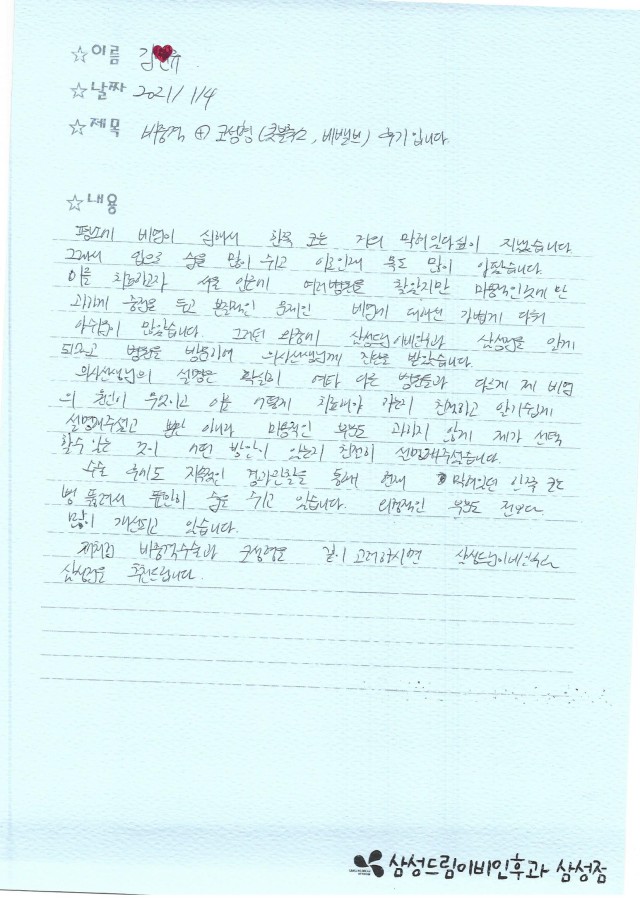 ☆이름 김♥유
☆날짜 2021/1/4
☆제목 비중격 ⊕ 코성형(콧볼축소, 비밸브) 후기입니다.
☆내용
평소에 비염이 심해서 한쪽 코는 거의 막혀있다싶이 지냈습니다.
그래서 입으로 숨을 많이 쉬고 이로인해 목도 많이 아팠습니다.
이를 치료하고자 서울 인근에 여러병원을 찾았지만 미용적인것에만
과하게 중점을 두고 본질적인 문제인 비염에 대해선 가볍게 다뤄
아쉬움이 많았습니다. 그러던 와중에 삼성드림이비인후과 삼성점을 알게
되었고 병원을 방문하여 의사선생님께 진료를 받았습니다.
의사선생님의 설명은 확실히 여타 다른 병원들과 다르게 제 비염
의 원인이 무엇이고 이를 어떻게 치료해야 하는지 친절하고 알기쉽게
설명해주셨고 뿐만 아니라 미용적인 부분도 과하지 않게 제가 선택
할수 있는 것이 어떤 방안이 있는지 친절히 설명해주셨습니다.
수술 후에도 지속적인 경과관찰을 통해 현재 막혀있던 한쪽 코도
뻥 뚫려서 편안히 숨을 쉬고 있습니다. 외형적인 부분도 전보다
많이 개선되고 있습니다.
저처럼 비중격수술과 코성형을 같이 고려하시면 삼성드림이비인후과
삼성점을 추천드립니다.
삼성드림이비인후과 삼성점